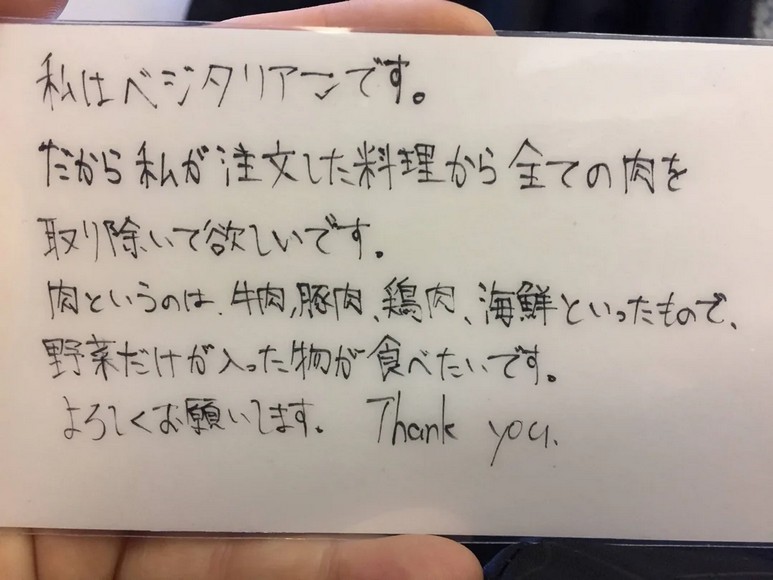 私はベジタリアンです。
だから私が注文した料理から全ての肉を
取り除いて欲しいです。
肉というのは、牛肉,豚肉、鶏肉、海鮮といったもので、
野菜だけが入った物が食べたいです。
よろしくお願いします。 Thank you.